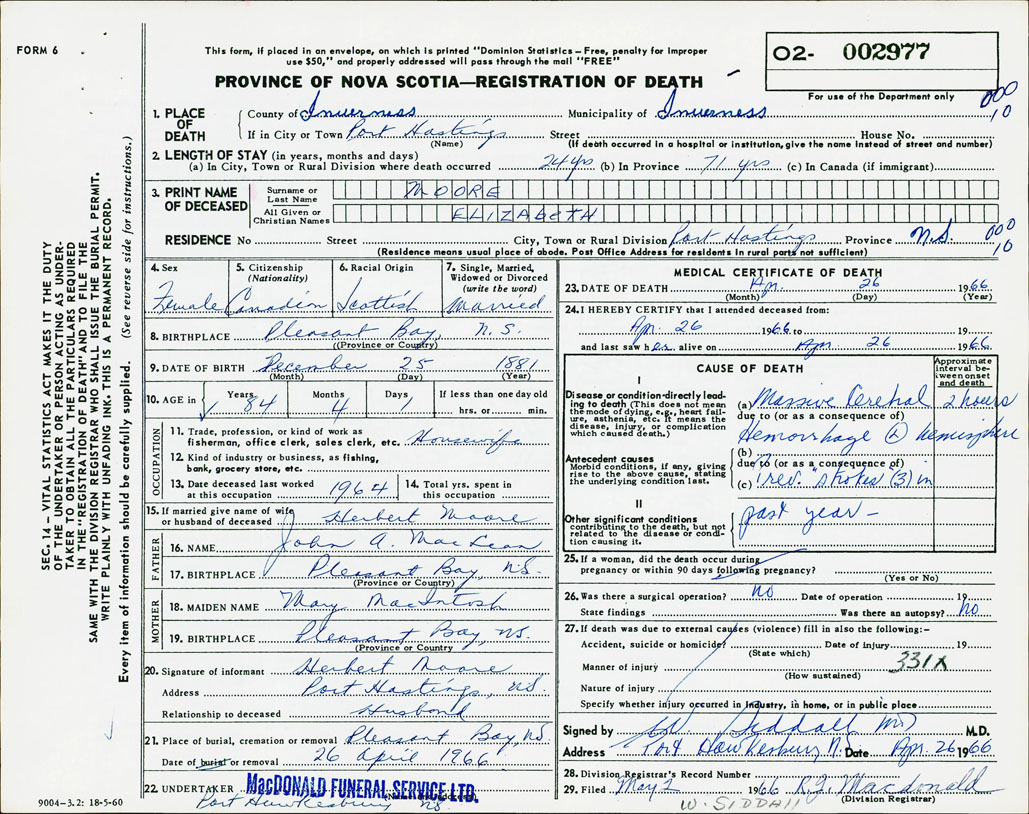 FORM 6
This form, if placed in an envelope, on which is printed "Dominion Statistics – Free, penalty for improper
use $50," and properly addressed will pass through the mail "FREE"
PROVINCE OF NOVA SCOTIA—REGISTRATION OF DEATH
02- 002977
For use of the Department only
000
10
1. PLACE OF DEATH
County of Inverness Municipality of Inverness
If in City or Town Port Hastings Street House No.
(Name) (If death occurred in a hospital or institution, give the name instead of street and number)
2. LENGTH OF STAY (in years, months and days)
(a) In City, Town or Rural Division where death occurred 24 yrs (b) In Province 71 yrs (c) In Canada (if immigrant)
3. PRINT NAME OF DECEASED
Surname or Last Name MOORE
All Given or Christian Names ELIZABETH
RESIDENCE No Street City, Town or Rural Division Port Hastings Province N.S. 000
10
(Residence means usual place of abode. Post Office Address for residents in rural parts not sufficient)
4. Sex Female
5. Citizenship (Nationality) Canadian
6. Racial Origin Scottish
7. Single, Married, Widowed or Divorced (write the word) Married
8. BIRTHPLACE Pleasant Bay, N.S.
(Province or Country)
9. DATE OF BIRTH December 25 1881
(Month) (Day) (Year)
10. AGE in Years 84 Months 4 Days 1 If less than one day old hrs. or min.
OCCUPATION
11. Trade, profession, or kind of work as
fisherman, office clerk, sales clerk, etc. Housewife
12. Kind of industry or business, as fishing,
bank, grocery store, etc.
13. Date deceased last worked at this occupation 1964
14. Total yrs. spent in this occupation
15. If married give name of wife
or husband of deceased Herbert Moore
FATHER
16. NAME John A. MacLean
17. BIRTHPLACE Pleasant Bay, N.S.
(Province or Country)
MOTHER
18. MAIDEN NAME Mary MacIntosh
19. BIRTHPLACE Pleasant Bay, N.S.
(Province or Country)
20. Signature of informant Herbert Moore
Address Port Hastings, N.S.
Relationship to deceased Husband
21. Place of burial, cremation or removal Pleasant Bay, N.S.
Date of burial or removal 26 April 1966
22. UNDERTAKER MacDONALD FUNERAL SERVICE LTD.
Port Hawkesbury N.S.
MEDICAL CERTIFICATE OF DEATH
23. DATE OF DEATH Ap. 26 1966
(Month) (Day) (Year)
24. I HEREBY CERTIFY that I attended deceased from:
Ap. 26 1966 to 19
and last saw her alive on Ap 26 1966
CAUSE OF DEATH
Approximate interval between onset and death
I
Disease or condition directly leading to death (This does not mean the mode of dying, e.g., heart failure, asthenia, etc. It means the disease, injury, or complication which caused death.)
(a) Massive Cerebral 2 hours
due to (or as a consequence of)
Hemorrhage (L) hemisphere
(b)
Antecedent causes
Morbid conditions, if any, giving rise to the above cause, stating the underlying condition last.
due to (or as a consequence of)
(c) Prev. "strokes" (3) in
II
Other significant conditions
contributing to the death, but not related to the disease or condition causing it.
past year –
25. If a woman, did the death occur during
pregnancy or within 90 days following pregnancy?
(Yes or No)
26. Was there a surgical operation? No Date of operation 19
State findings Was there an autopsy? No
27. If death was due to external causes (violence) fill in also the following:–
Accident, suicide or homicide? Date of injury 19
(State which)
331X
Manner of injury
(How sustained)
Nature of injury
Specify whether injury occurred in industry, in home, or in public place
Signed by W. Siddall MD M.D.
Address Port Hawkesbury N. Date Apr. 26 1966
28. Division Registrar's Record Number
29. Filed May 2 1966 R.J. Macdonald
(Division Registrar)
W. SIDDAll
9004-3.2: 18-5-60
SEC. 14 – VITAL STATISTICS ACT MAKES IT THE DUTY
OF THE UNDERTAKER OR PERSON ACTING AS UNDER-
TAKER TO OBTAIN ALL THE PARTICULARS REQUIRED
IN THE "REGISTRATION OF DEATH" AND TO FILE THE
SAME WITH THE DIVISION REGISTRAR WHO SHALL ISSUE THE BURIAL PERMIT.
WRITE PLAINLY WITH UNFADING INK. THIS IS A PERMANENT RECORD.
Every item of information should be carefully supplied. (See reverse side for instructions.)